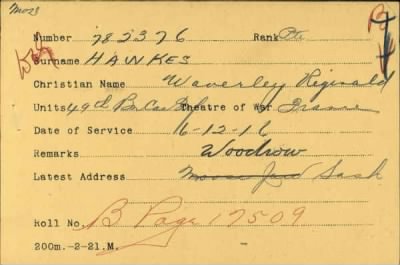 Number 782376 Rank Pte
Surname HAWKES
Christian Name Waverley Reginald
Units 49th Bn Can Inf Theatre of War France
Date of Service 6-12-16
Remarks Woodrow
Latest Address Moose Jaw Sask
Roll No. B Page 17509
200m.-2-21.M.